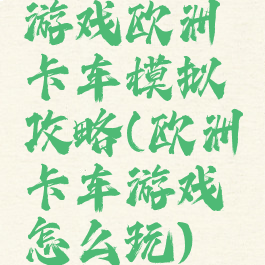 游戏欧洲
卡车模拟
攻略(欧洲
卡车游戏
怎么玩)